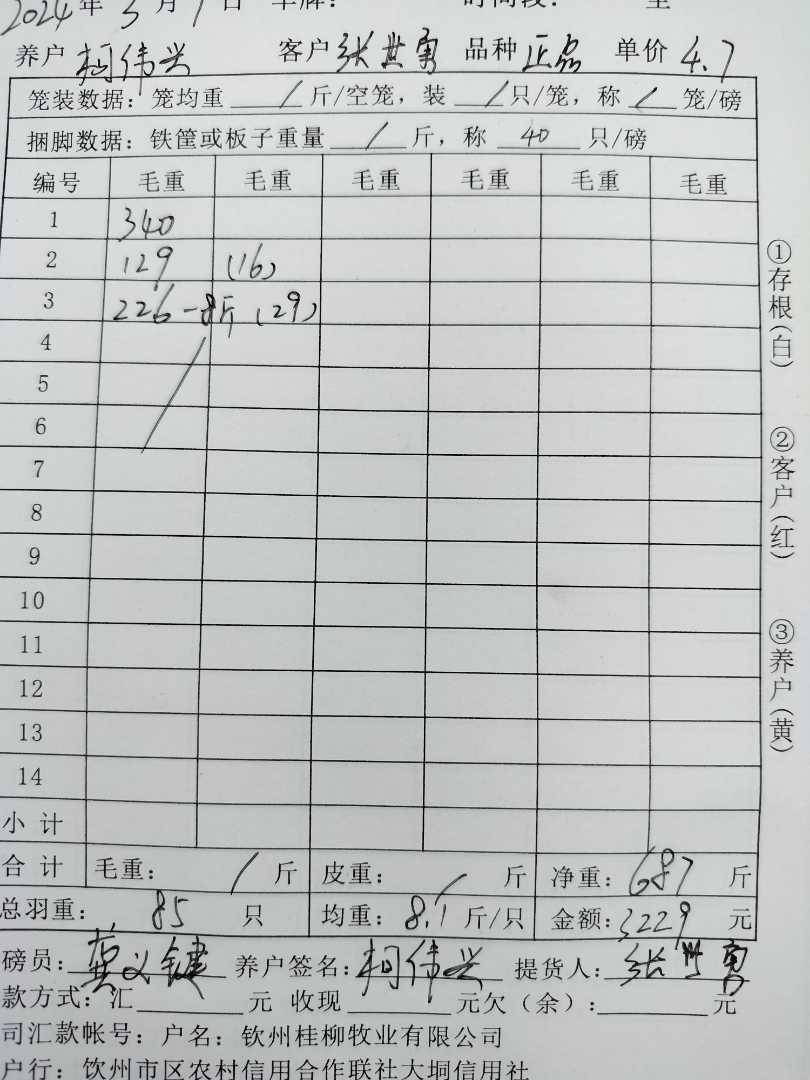 2024年3月1日 车牌： 时间段： 至
养户 柯伟兴 客户 张世勇 品种 正品 单价 4.7
笼装数据：笼均重 / 斤/空笼，装 / 只/笼，称 / 笼/磅
捆脚数据：铁筐或板子重量 / 斤，称 40 只/磅
编号 毛重 毛重 毛重 毛重 毛重 毛重
1 340
2 129 (16)
3 226-8斤 (29)
4
5
6
7
8
9
10
11
12
13
14
小计
合计 毛重： / 斤 皮重： / 斤 净重：687 斤
总羽重： 85 只 均重：8.1 斤/只 金额：3229 元
磅员：龚义键 养户签名：柯伟兴 提货人：张世勇
款方式：汇 元 收现 元欠（余）： 元
司汇款帐号：户名：钦州桂柳牧业有限公司
户行：钦州市区农村信用合作联社大垌信用社
①存根（白）
②客户（红）
③养户（黄）